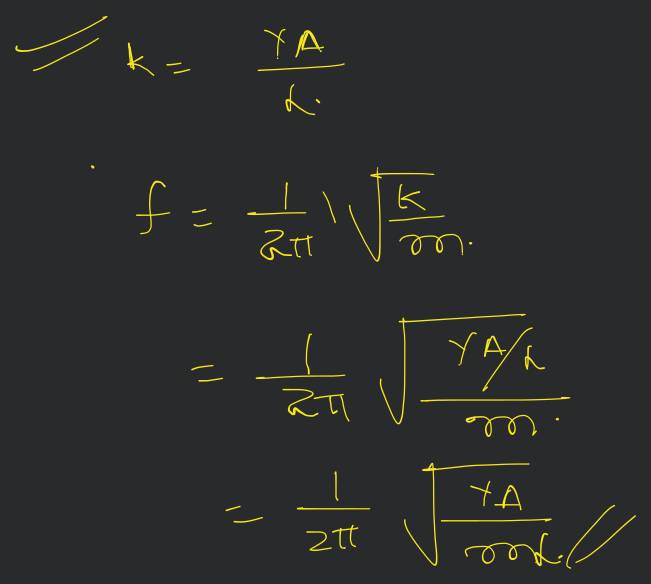 k = YA / L.
f = 1/2π √(K/m).
= 1/2π √((YA/L)/m).
= 1/2π √(YA/mL).